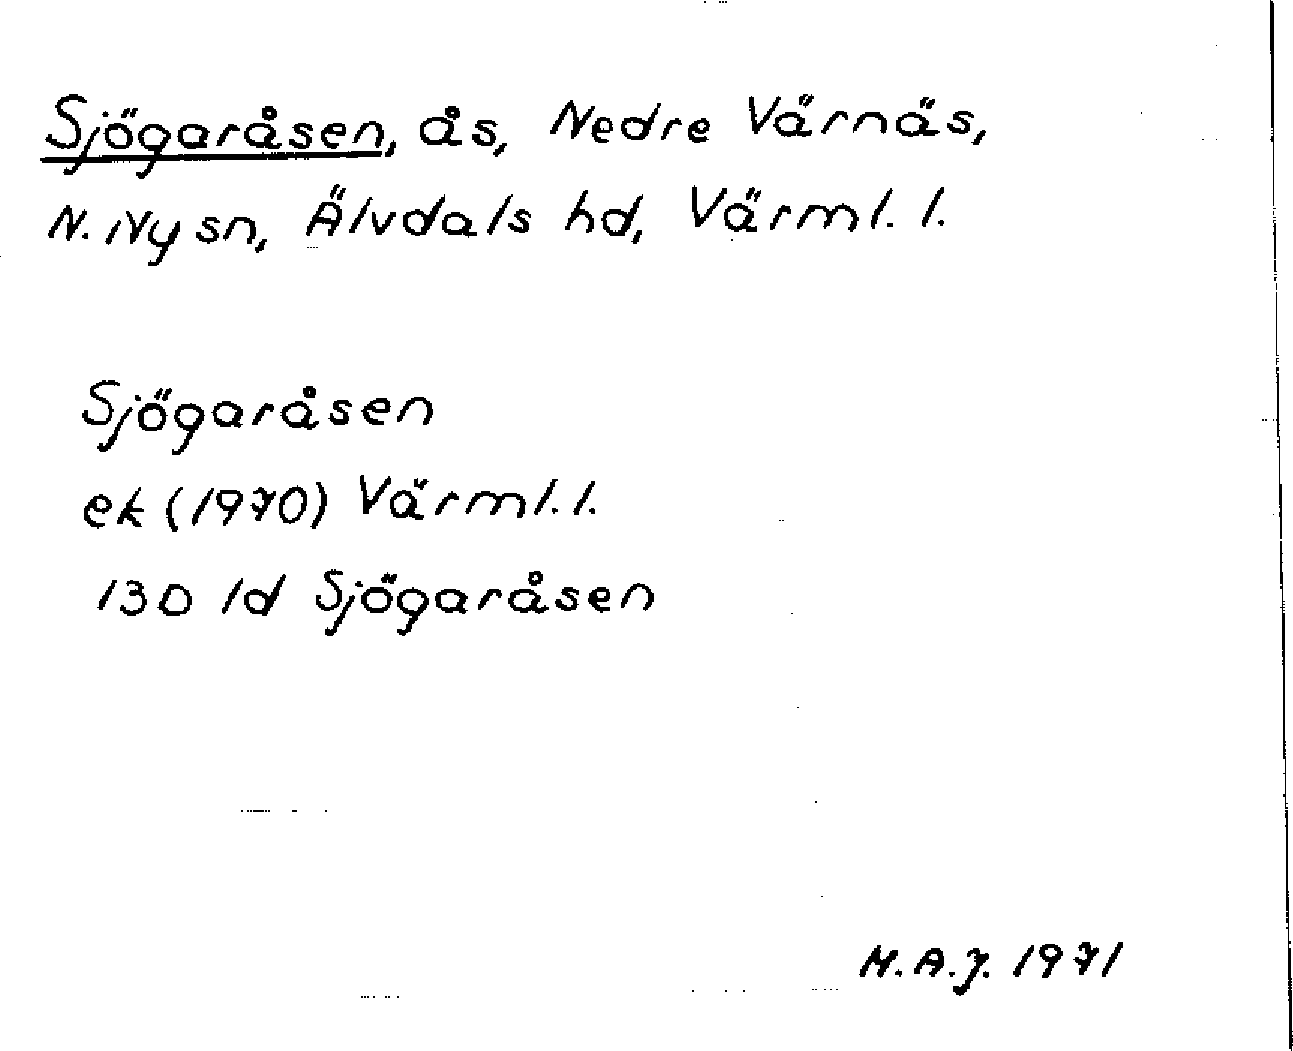 Sjögaråsen, ås, Nedre Värnäs,
N. Ny sn, Älvdals hd, Värml. l.
Sjögaråsen
ek (1970) Värml. l.
13D 1d Sjögaråsen
M.A.J. 1971